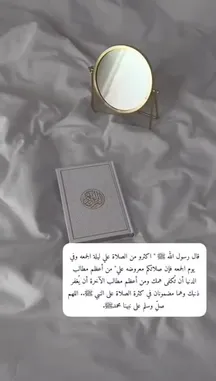 قال رسول الله ﷺ " اكثرو من الصلاة علي ليلة الجمعه وفي
يوم الجمعه فإن صلاتكم معروضه علي" من أعظم مطالب
الدنيا أن تُكفى همك ومن أعظم مطالب الآخرة أن يُغفر
ذنبك وهما مضمونان في كثرة الصلاة على النبي ﷺ.. اللهم
صلِ وسلم على نبينا محمدﷺ.